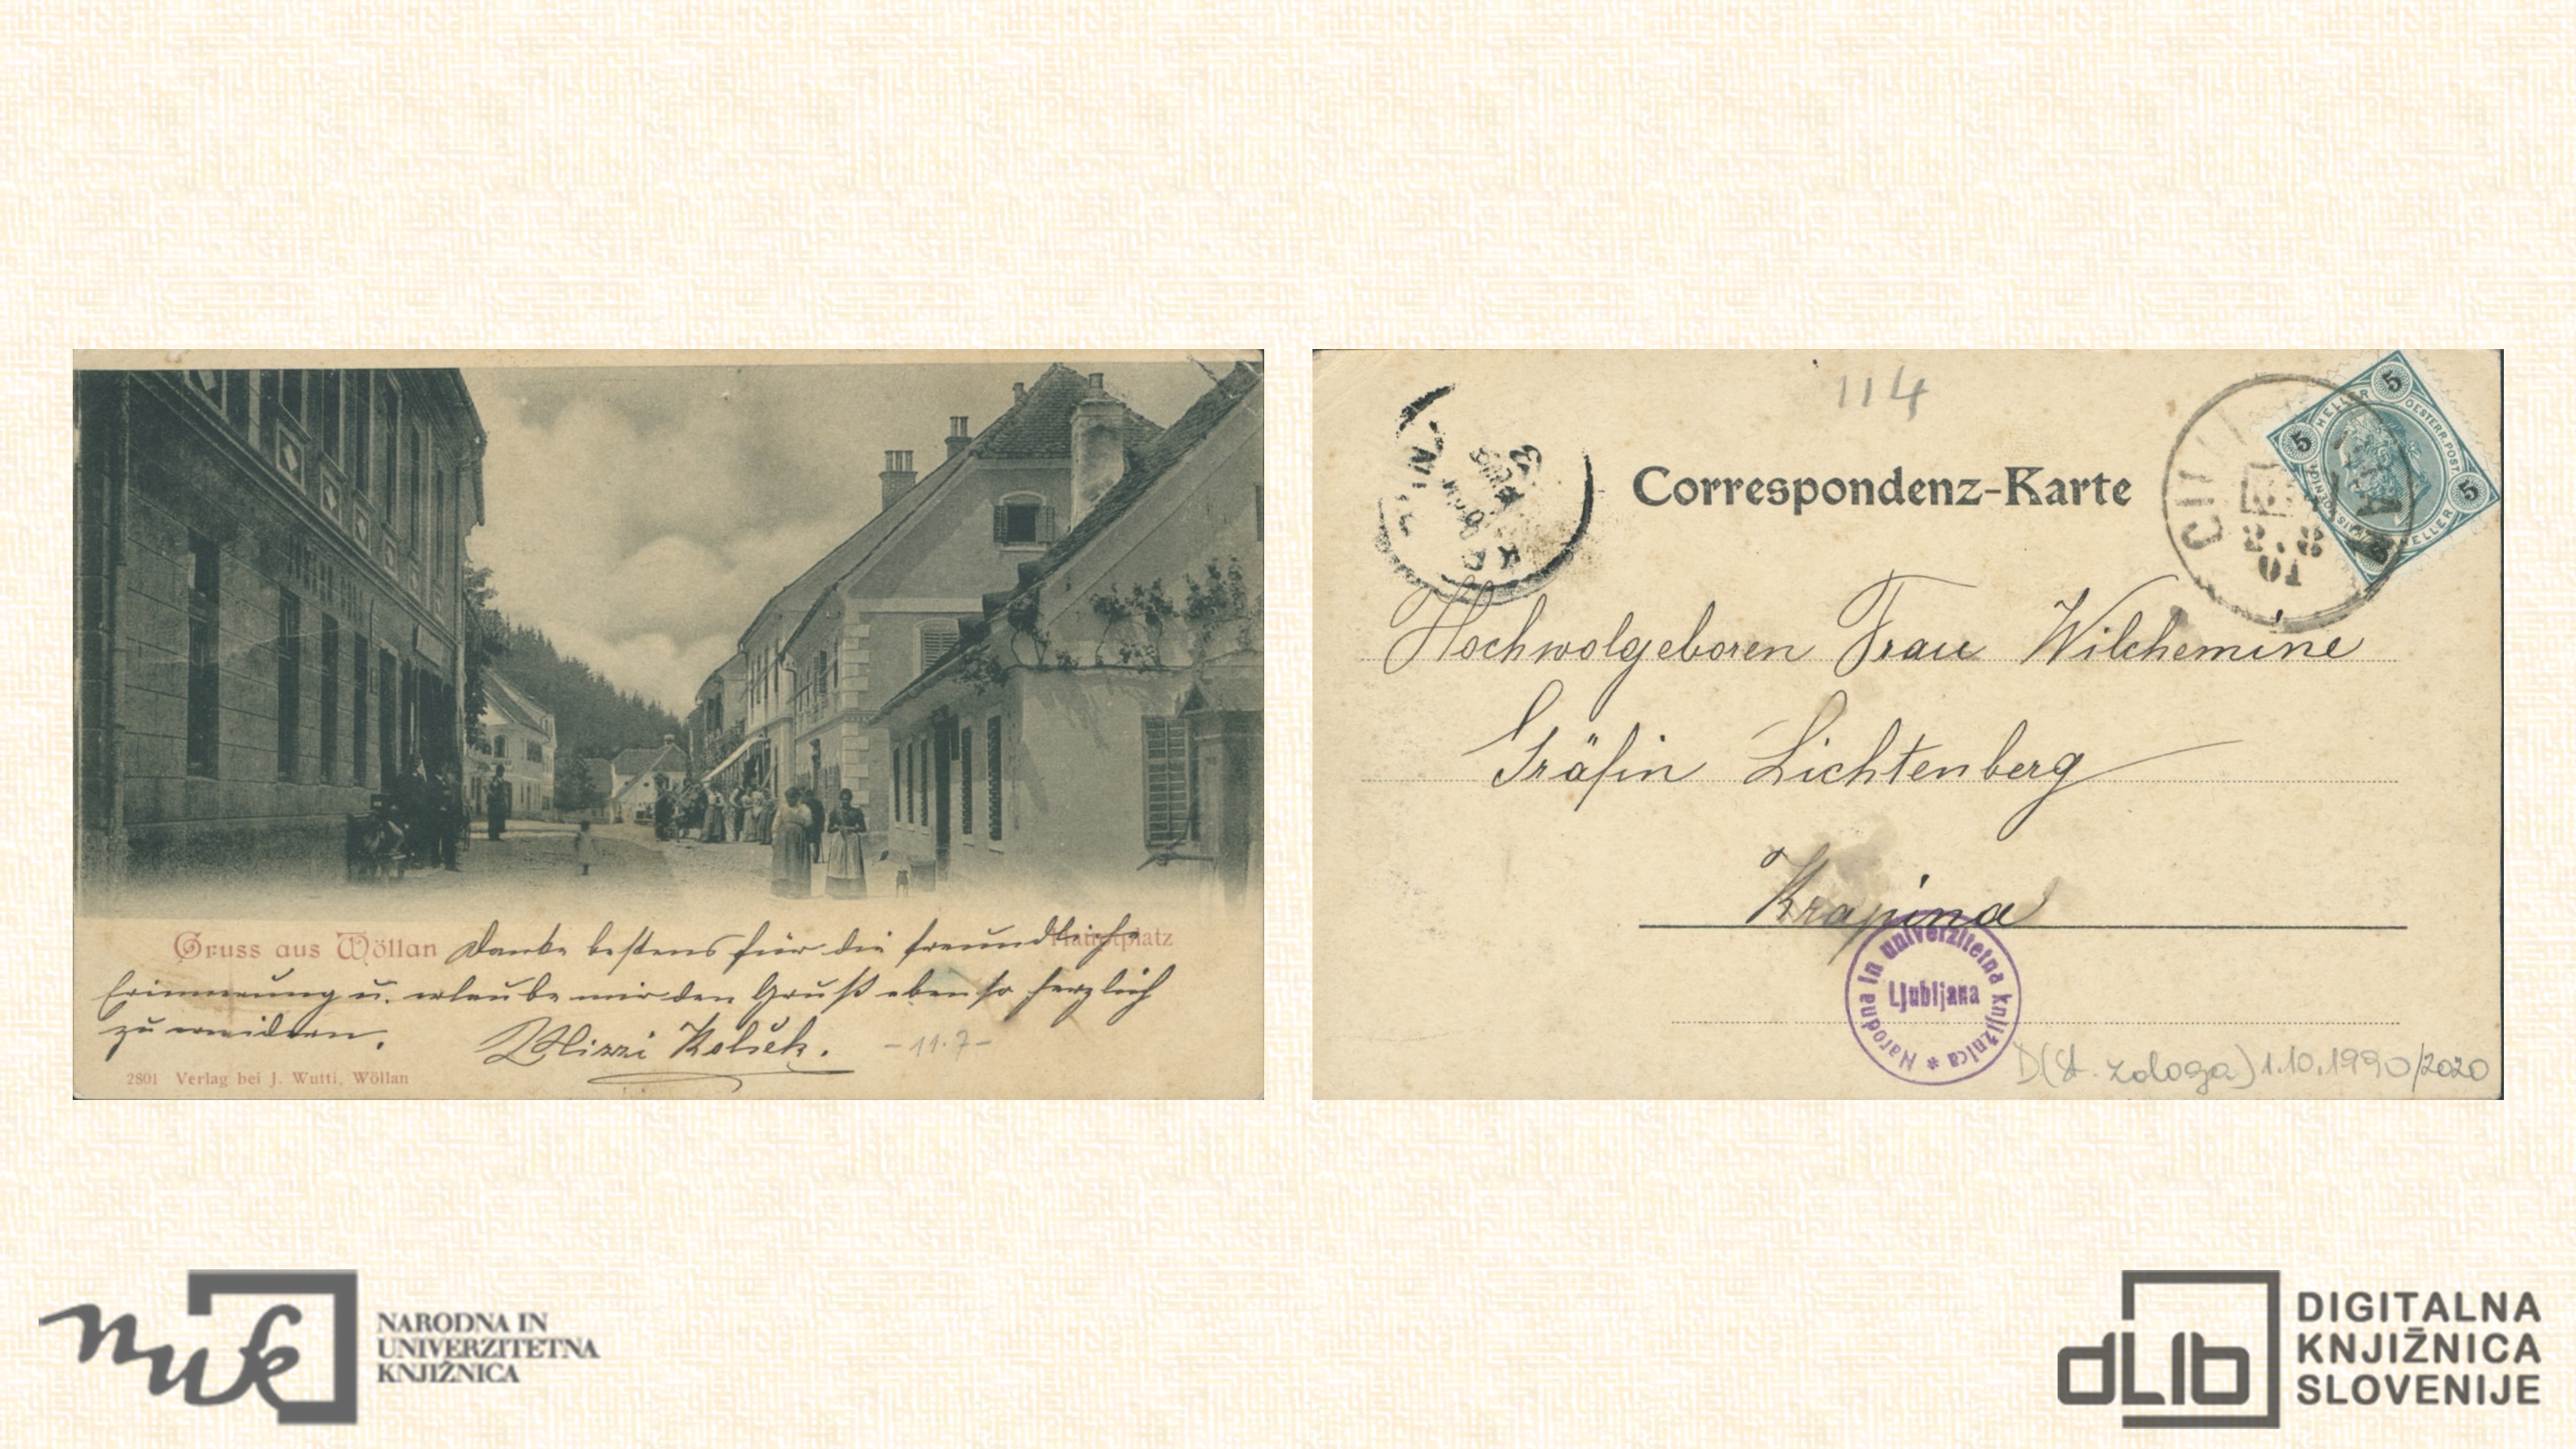 Gruss aus Wöllan
Hauptplatz
Danke bestens für die freundliche
Erinnerung u. erlaube mir den Gruß ebenso herzlich
zu erwidern.
Mizzi
- 11.7 -
2801 Verlag bei J. Wutti, Wöllan
114
Correspondenz-Karte
5 HELLER OESTERR. POST.
CILLI
Hochwolgeboren Frau Wilchemine
Gräfin Lichtenberg
Krapina
Narodna in univerzitetna knjižnica *
Ljubljana
1.10.1990/2020
nuk
NARODNA IN
UNIVERZITETNA
KNJIŽNICA
dLib
DIGITALNA
KNJIŽNICA
SLOVENIJE